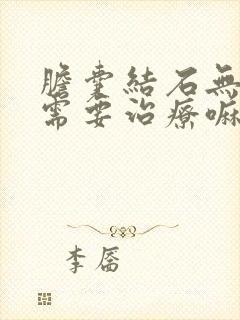 膽囊結石無
需要治療嘛
李厝